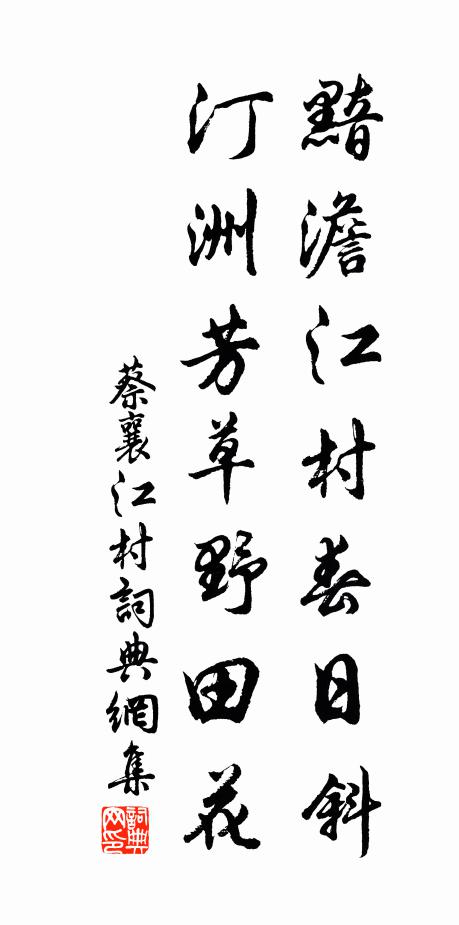 黯澹江村春日斜
汀洲芳草野田花
蔡襄江村詞典網集
詞典網印